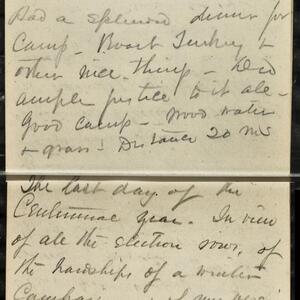 Had a splendid dinner for
Camp - Roast Turkey &
other nice thing - Did
ample justice to it all -
Good camp - wood water
& grass! Distance 20 ms
The last day of the
Centennial year. In view
of all the election rows, of
the hardships of a winter
Campaign